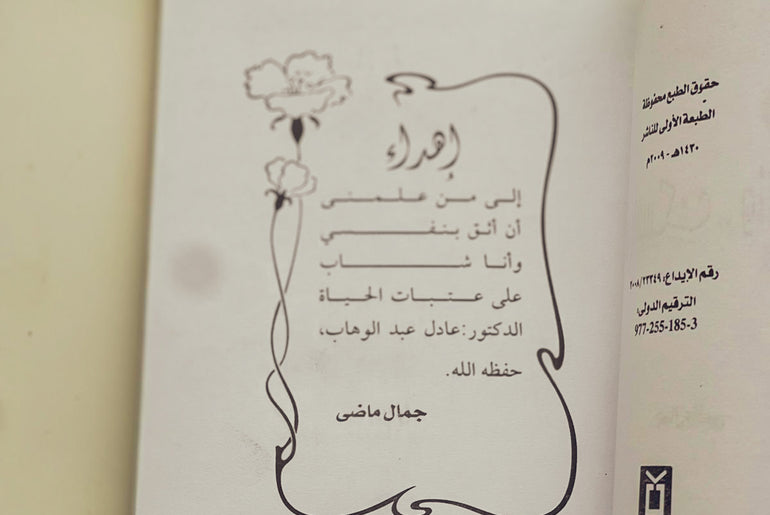 إهداء
إلى من علمنى
أن أثق بنفسي
وأنا شاب
على عتبات الحياة
الدكتور:عادل عبد الوهاب،
حفظه الله.
جمال ماضى
حقوق الطبع محفوظة
الطبعة الأولى للناشر
١٤٣٠هـ - ٢٠٠٩م
رقم الإيداع: ٢٠٠٨/٢٣٣٤٩
الترقيم الدولى:
977-255-185-3